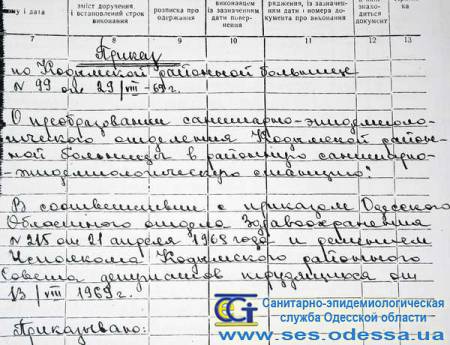 зміст доручення, і встановлений строк виконання
розписка про одержання
виконавцем із зазначенням дати повернення
рядження, із зазначенням дати і номера документа про виконання
знаходиться документ
ну і дата
7 8 9 10 11 12 13
Приказ
по Кодымской районной больнице
N 99 от 29/VIII-69г.
О преобразовании санитарно-эпидемиоло-
гического отделения Кодымской район-
ной больницы в районную санитарно-
-эпидемиологическую станцию:
В соответствии с приказом Одесского
Областного отдела Здравоохранения
N 215 от 21 апреля 1968 года и решением
Исполкома Кодымского районного
Совета депутатов трудящихся от
13/VIII 1969г.
Приказываю:
Санитарно-эпидемиологическая
служба Одесской области
www.ses.odessa.ua